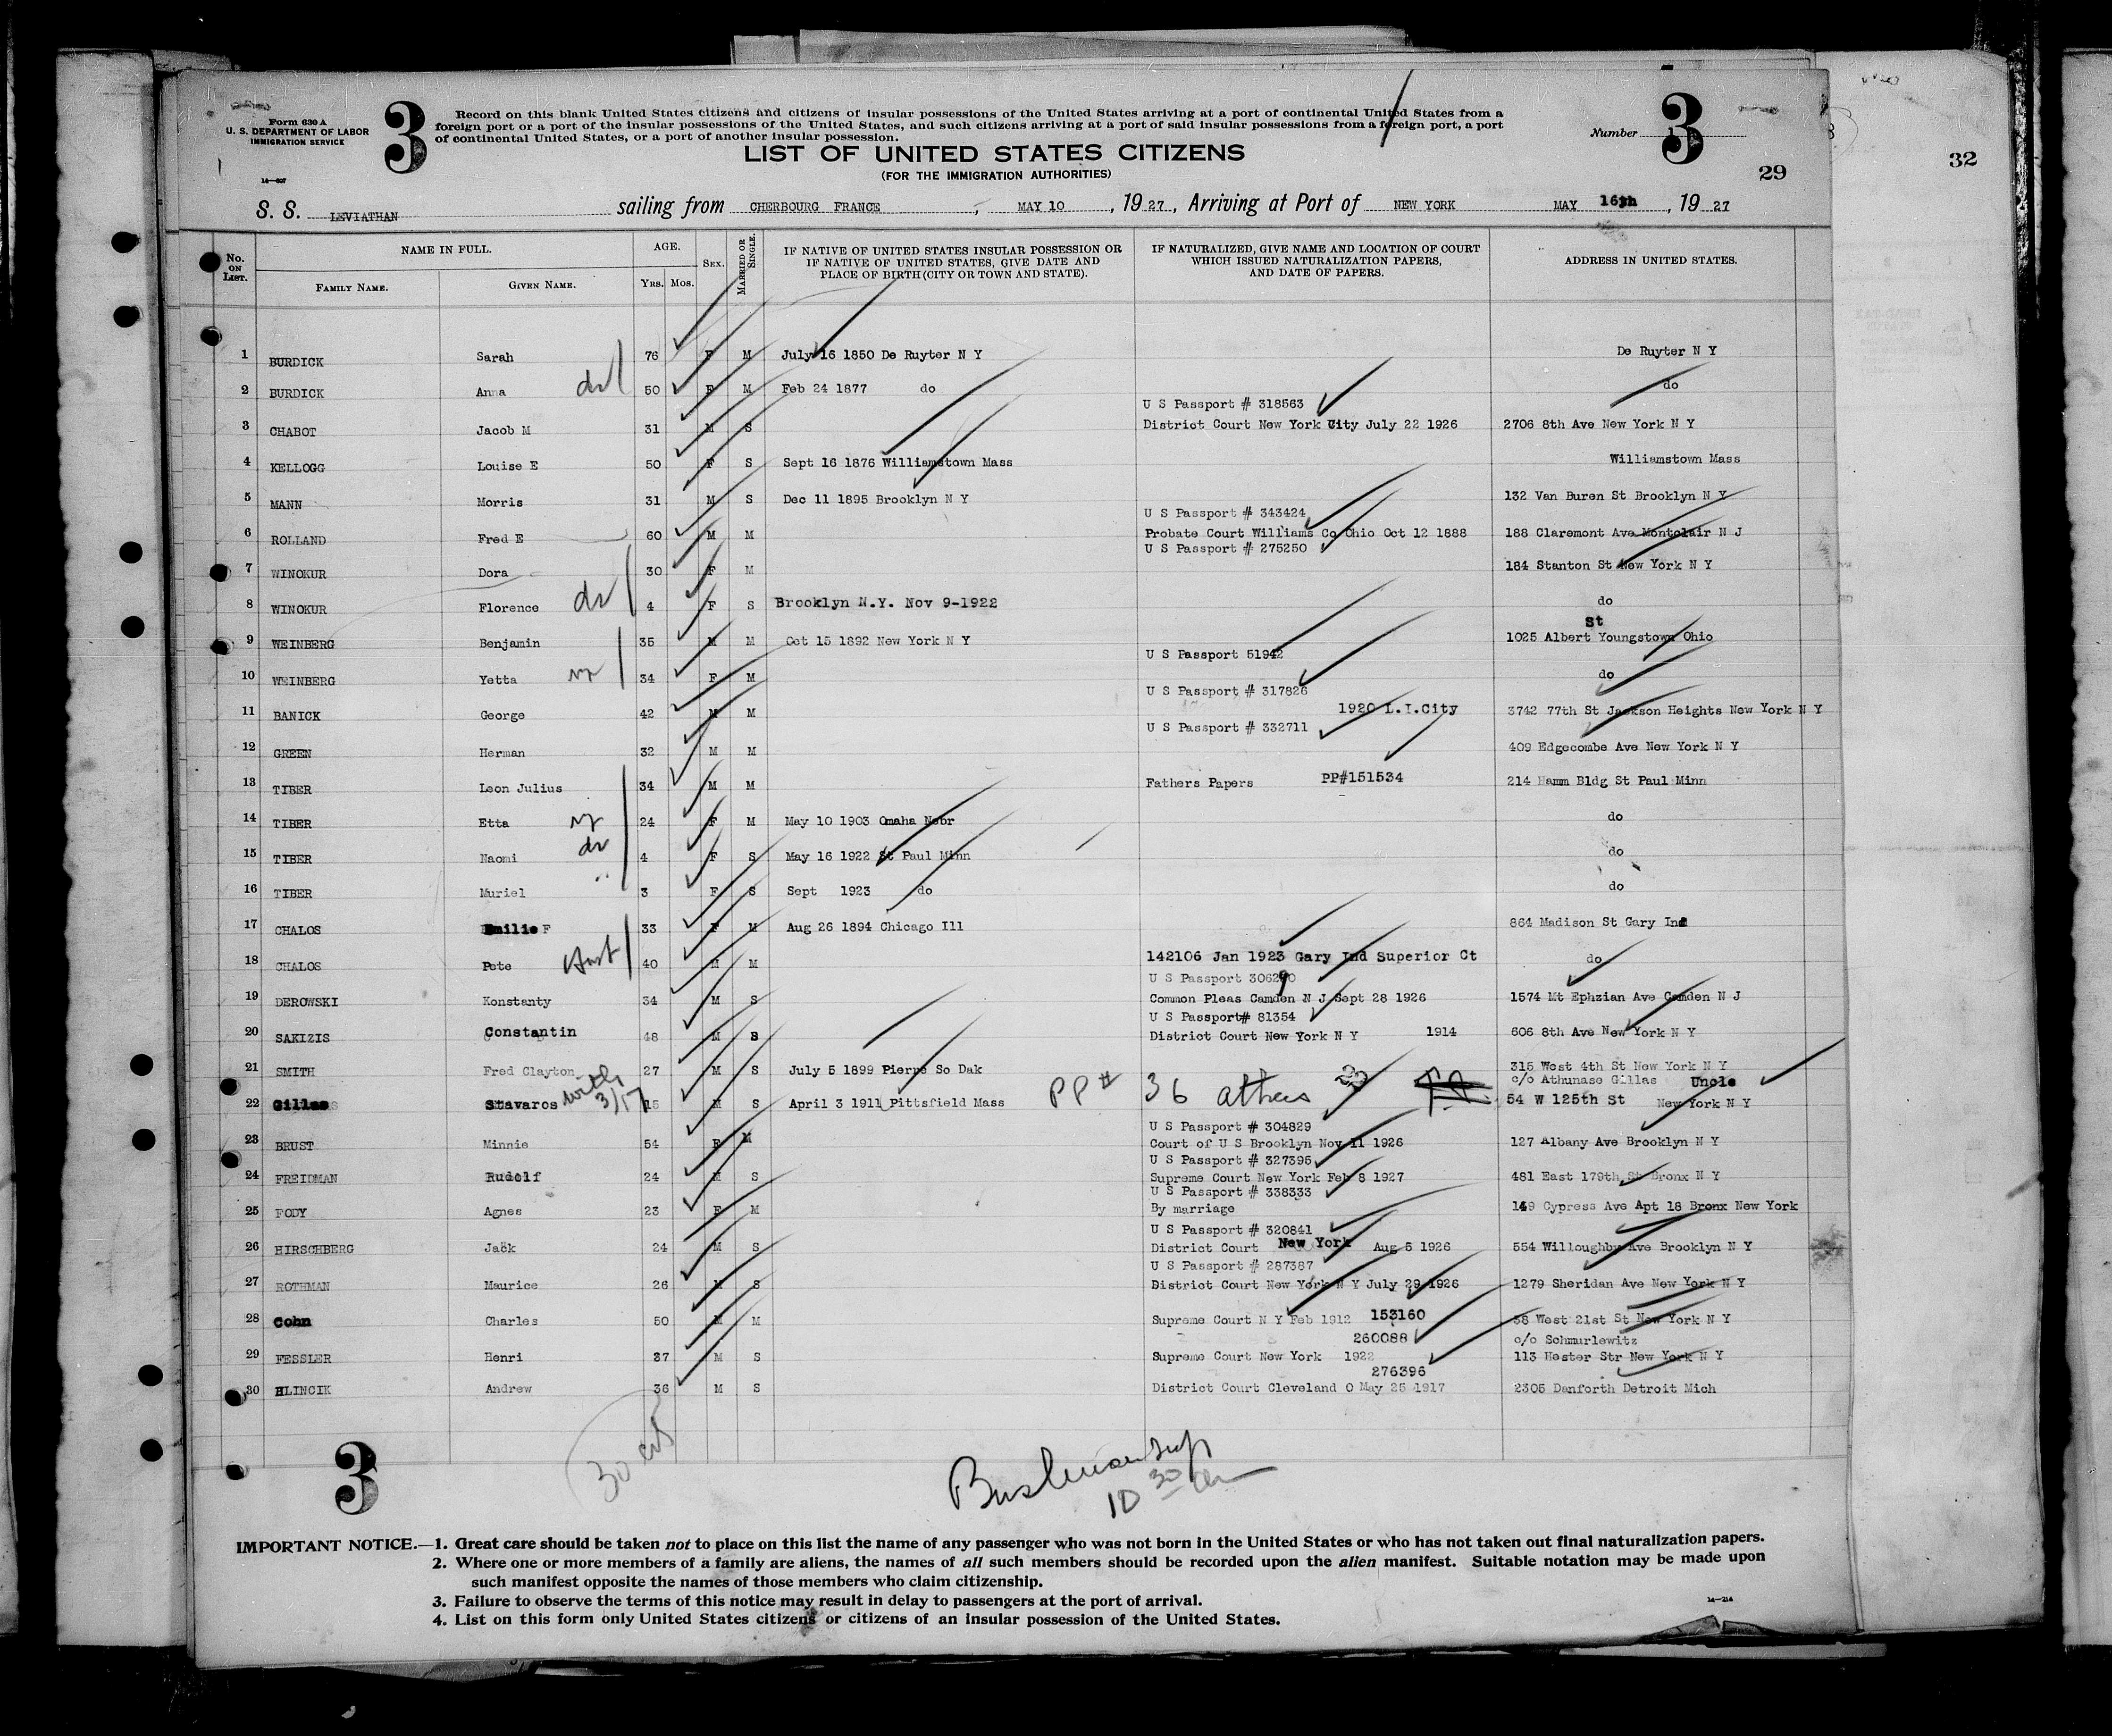 Form 630 A
U. S. DEPARTMENT OF LABOR
IMMIGRATION SERVICE
14—607
3
Record on this blank United States citizens and citizens of insular possessions of the United States arriving at a port of continental United States from a
foreign port or a port of the insular possessions of the United States, and such citizens arriving at a port of said insular possessions from a foreign port, a port
of continental United States, or a port of another insular possession.
Number 3
LIST OF UNITED STATES CITIZENS
(FOR THE IMMIGRATION AUTHORITIES)
29
32
S. S. LEVIATHAN sailing from CHERBOURG FRANCE, MAY 10, 1927, Arriving at Port of NEW YORK MAY 16th, 1927
No. ON LIST. NAME IN FULL. FAMILY NAME. GIVEN NAME. AGE. YRS. MOS. SEX. MARRIED OR SINGLE. IF NATIVE OF UNITED STATES INSULAR POSSESSION OR IF NATIVE OF UNITED STATES, GIVE DATE AND PLACE OF BIRTH (CITY OR TOWN AND STATE). IF NATURALIZED, GIVE NAME AND LOCATION OF COURT WHICH ISSUED NATURALIZATION PAPERS, AND DATE OF PAPERS. ADDRESS IN UNITED STATES.
1 BURDICK Sarah 76 F M July 16 1850 De Ruyter N Y De Ruyter N Y
2 BURDICK Anna 50 F M Feb 24 1877 do do
U S Passport # 318563
3 CHABOT Jacob M 31 M S District Court New York City July 22 1926 2706 8th Ave New York N Y
4 KELLOGG Louise E 50 F S Sept 16 1876 Williamstown Mass Williamstown Mass
5 MANN Morris 31 M S Dec 11 1895 Brooklyn N Y 132 Van Buren St Brooklyn N Y
U S Passport # 343424
6 ROLLAND Fred E 60 M M Probate Court Williams Co Ohio Oct 12 1888 188 Claremont Ave Montclair N J
U S Passport # 275250
7 WINOKUR Dora 30 F M 184 Stanton St New York N Y
8 WINOKUR Florence 4 F S Brooklyn N.Y. Nov 9-1922 do
9 WEINBERG Benjamin 35 M M Oct 15 1892 New York N Y 1025 Albert St Youngstown Ohio
U S Passport 51942
10 WEINBERG Yetta 34 F M do
U S Passport # 317826
11 BANICK George 42 M M 1920 L.I.City 3742 77th St Jackson Heights New York N Y
U S Passport # 332711
12 GREEN Herman 32 M M 409 Edgecombe Ave New York N Y
13 TIBER Leon Julius 34 M M Fathers Papers PP#151534 214 Hamm Bldg St Paul Minn
14 TIBER Etta 24 F M May 10 1903 Omaha Nebr do
15 TIBER Naomi 4 F S May 16 1922 St Paul Minn do
16 TIBER Muriel 3 F S Sept 1923 do do
17 CHALOS Emilie F 33 F M Aug 26 1894 Chicago Ill 864 Madison St Gary Ind
18 CHALOS Pete 40 M M 142106 Jan 1923 Gary Ind Superior Ct do
U S Passport
19 DEROWSKI Konstanty 34 M S Common Pleas Camden N J Sept 28 1926 1574 Mt Ephzian Ave Camden N J
U S Passport# 81354
20 SAKIZIS Constantin 48 M S District Court New York N Y 1914 606 8th Ave New York N Y
21 SMITH Fred Clayton 27 M S July 5 1899 Pierre So Dak 315 West 4th St New York N Y
c/o Athunase Gillas Uncle
22 Gillas Stavaros with 3/17 M S April 3 1911 Pittsfield Mass PP # 36 athens 54 W 125th St New York N Y
U S Passport # 304829
23 BRUST Minnie 54 F M Court of U S Brooklyn Nov 11 1926 127 Albany Ave Brooklyn N Y
U S Passport # 327395
24 FREIDMAN Rudolf 24 M S Supreme Court New York Feb 8 1927 481 East 179th St Bronx N Y
U S Passport # 338333
25 FODY Agnes 23 F M By marriage 149 Cypress Ave Apt 18 Bronx New York
U S Passport # 320841
26 HIRSCHBERG Jack 24 M S District Court New York Aug 5 1926 554 Willoughby Ave Brooklyn N Y
U S Passport # 287387
27 ROTHMAN Maurice 26 M S District Court New York N Y July 29 1926 1279 Sheridan Ave New York N Y
28 Cohn Charles 50 M M Supreme Court N Y Feb 1912 153160 58 West 21st St New York N Y
260088 c/o Schmurlewitz
29 FESSLER Henri 37 M S Supreme Court New York 1922 113 Hester Str New York N Y
276396
30 HLINCIK Andrew 36 M S District Court Cleveland O May 25 1917 2305 Danforth Detroit Mich
30 cit
10 30 am
3
IMPORTANT NOTICE.—1. Great care should be taken not to place on this list the name of any passenger who was not born in the United States or who has not taken out final naturalization papers.
2. Where one or more members of a family are aliens, the names of all such members should be recorded upon the alien manifest. Suitable notation may be made upon
such manifest opposite the names of those members who claim citizenship.
3. Failure to observe the terms of this notice may result in delay to passengers at the port of arrival.
4. List on this form only United States citizens or citizens of an insular possession of the United States.
14—214